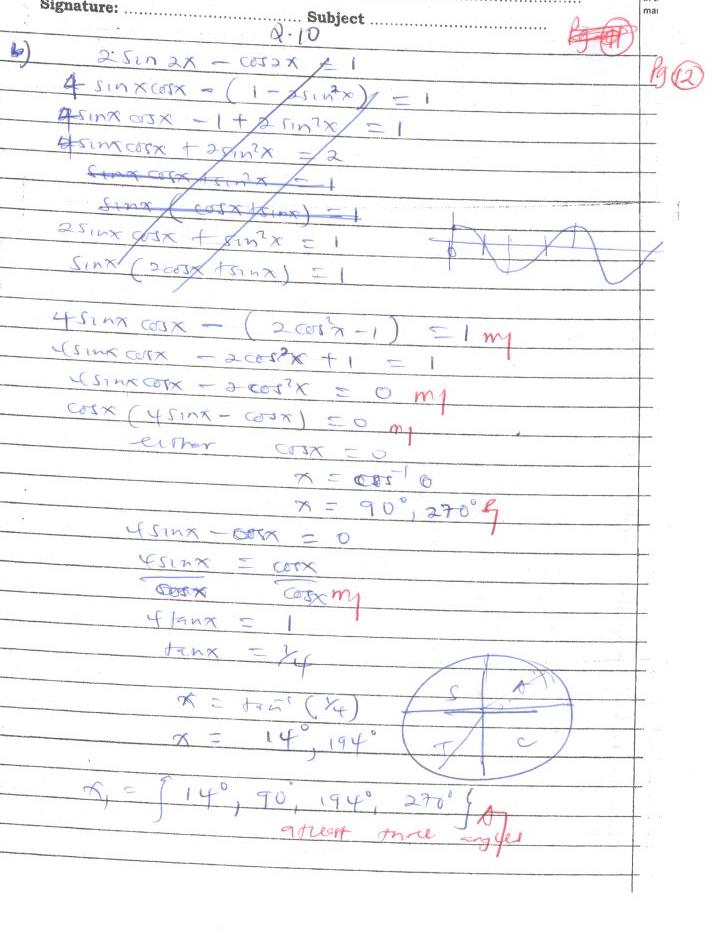 Signature: ........................ Subject ........................
mar
Q.10
Pg 11
Pg 12
b) 2 sin 2x - cos2x = 1
4 sinxcosx - (1 - 2sin²x) = 1
4sinx cosx - 1 + 2 sin²x = 1
4sinxcosx + 2sin²x = 2
sinx cosx + sin²x = 1
sinx (cosx + sinx) = 1
2sinx cosx + sin²x = 1
sinx (2cosx + sinx) = 1
0
4 sinx cosx - (2 cos²x - 1) = 1 m1
4sinx cosx - 2cos²x + 1 = 1
4sinxcosx - 2cos²x = 0 m1
cosx (4sinx - cosx) = 0 m1
either cosx = 0
x = cos⁻¹ 0
x = 90°, 270°
4sinx - cosx = 0
4sinx = cosx
cosx cosx m1
4tanx = 1
tanx = 1/4
x = tan⁻¹ (1/4)
x = 14°, 194°
S A
T C
x, = { 14°, 90°, 194°, 270° } A1
atleast three angles